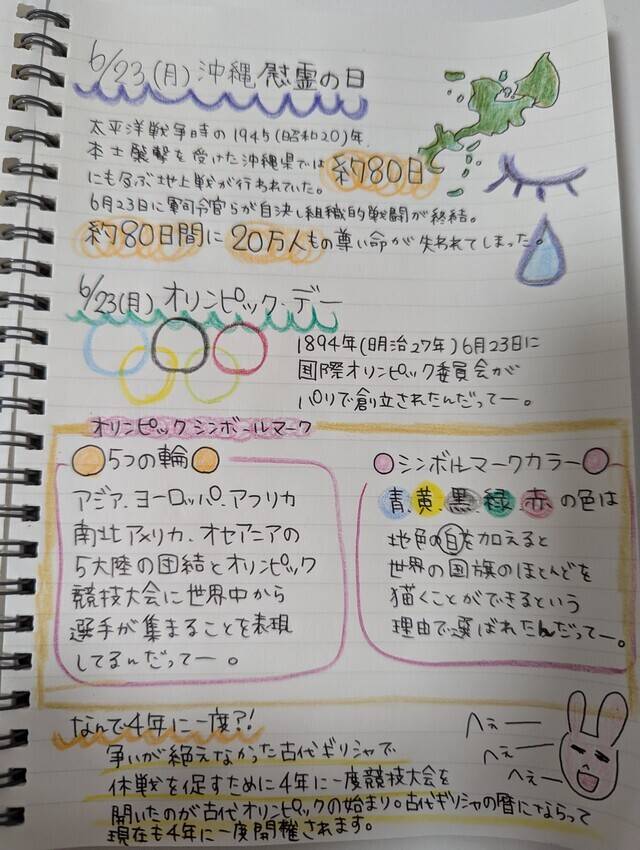 6/23(月)沖縄慰霊の日
太平洋戦争時の1945(昭和20)年、
本土襲撃を受けた沖縄県では約80日
にも及ぶ地上戦が行われていた。
6月23日に軍司令官らが自決し組織的戦闘が終結。
約80日間に20万人もの尊い命が失われてしまった。
6/23(月)オリンピック・デー
1894年(明治27年)6月23日に
国際オリンピック委員会が
パリで創立されたんだってー。
オリンピックシンボールマーク
5つの輪
アジア、ヨーロッパ、アフリカ
南北アメリカ、オセアニアの
5大陸の団結とオリンピック
競技大会に世界中から
選手が集まることを表現
してるんだってー。
シンボルマークカラー
青、黄、黒、緑、赤の色は
地色の白を加えると
世界の国旗のほとんどを
描くことができるという
理由で選ばれたんだってー。
なんで4年に一度?!
争いが絶えなかった古代ギリシャで
休戦を促すために4年に一度競技大会を
開いたのが古代オリンピックの始まり。古代ギリシャの暦にならって
現在も4年に一度開催されます。
へぇー
へぇー
へぇー